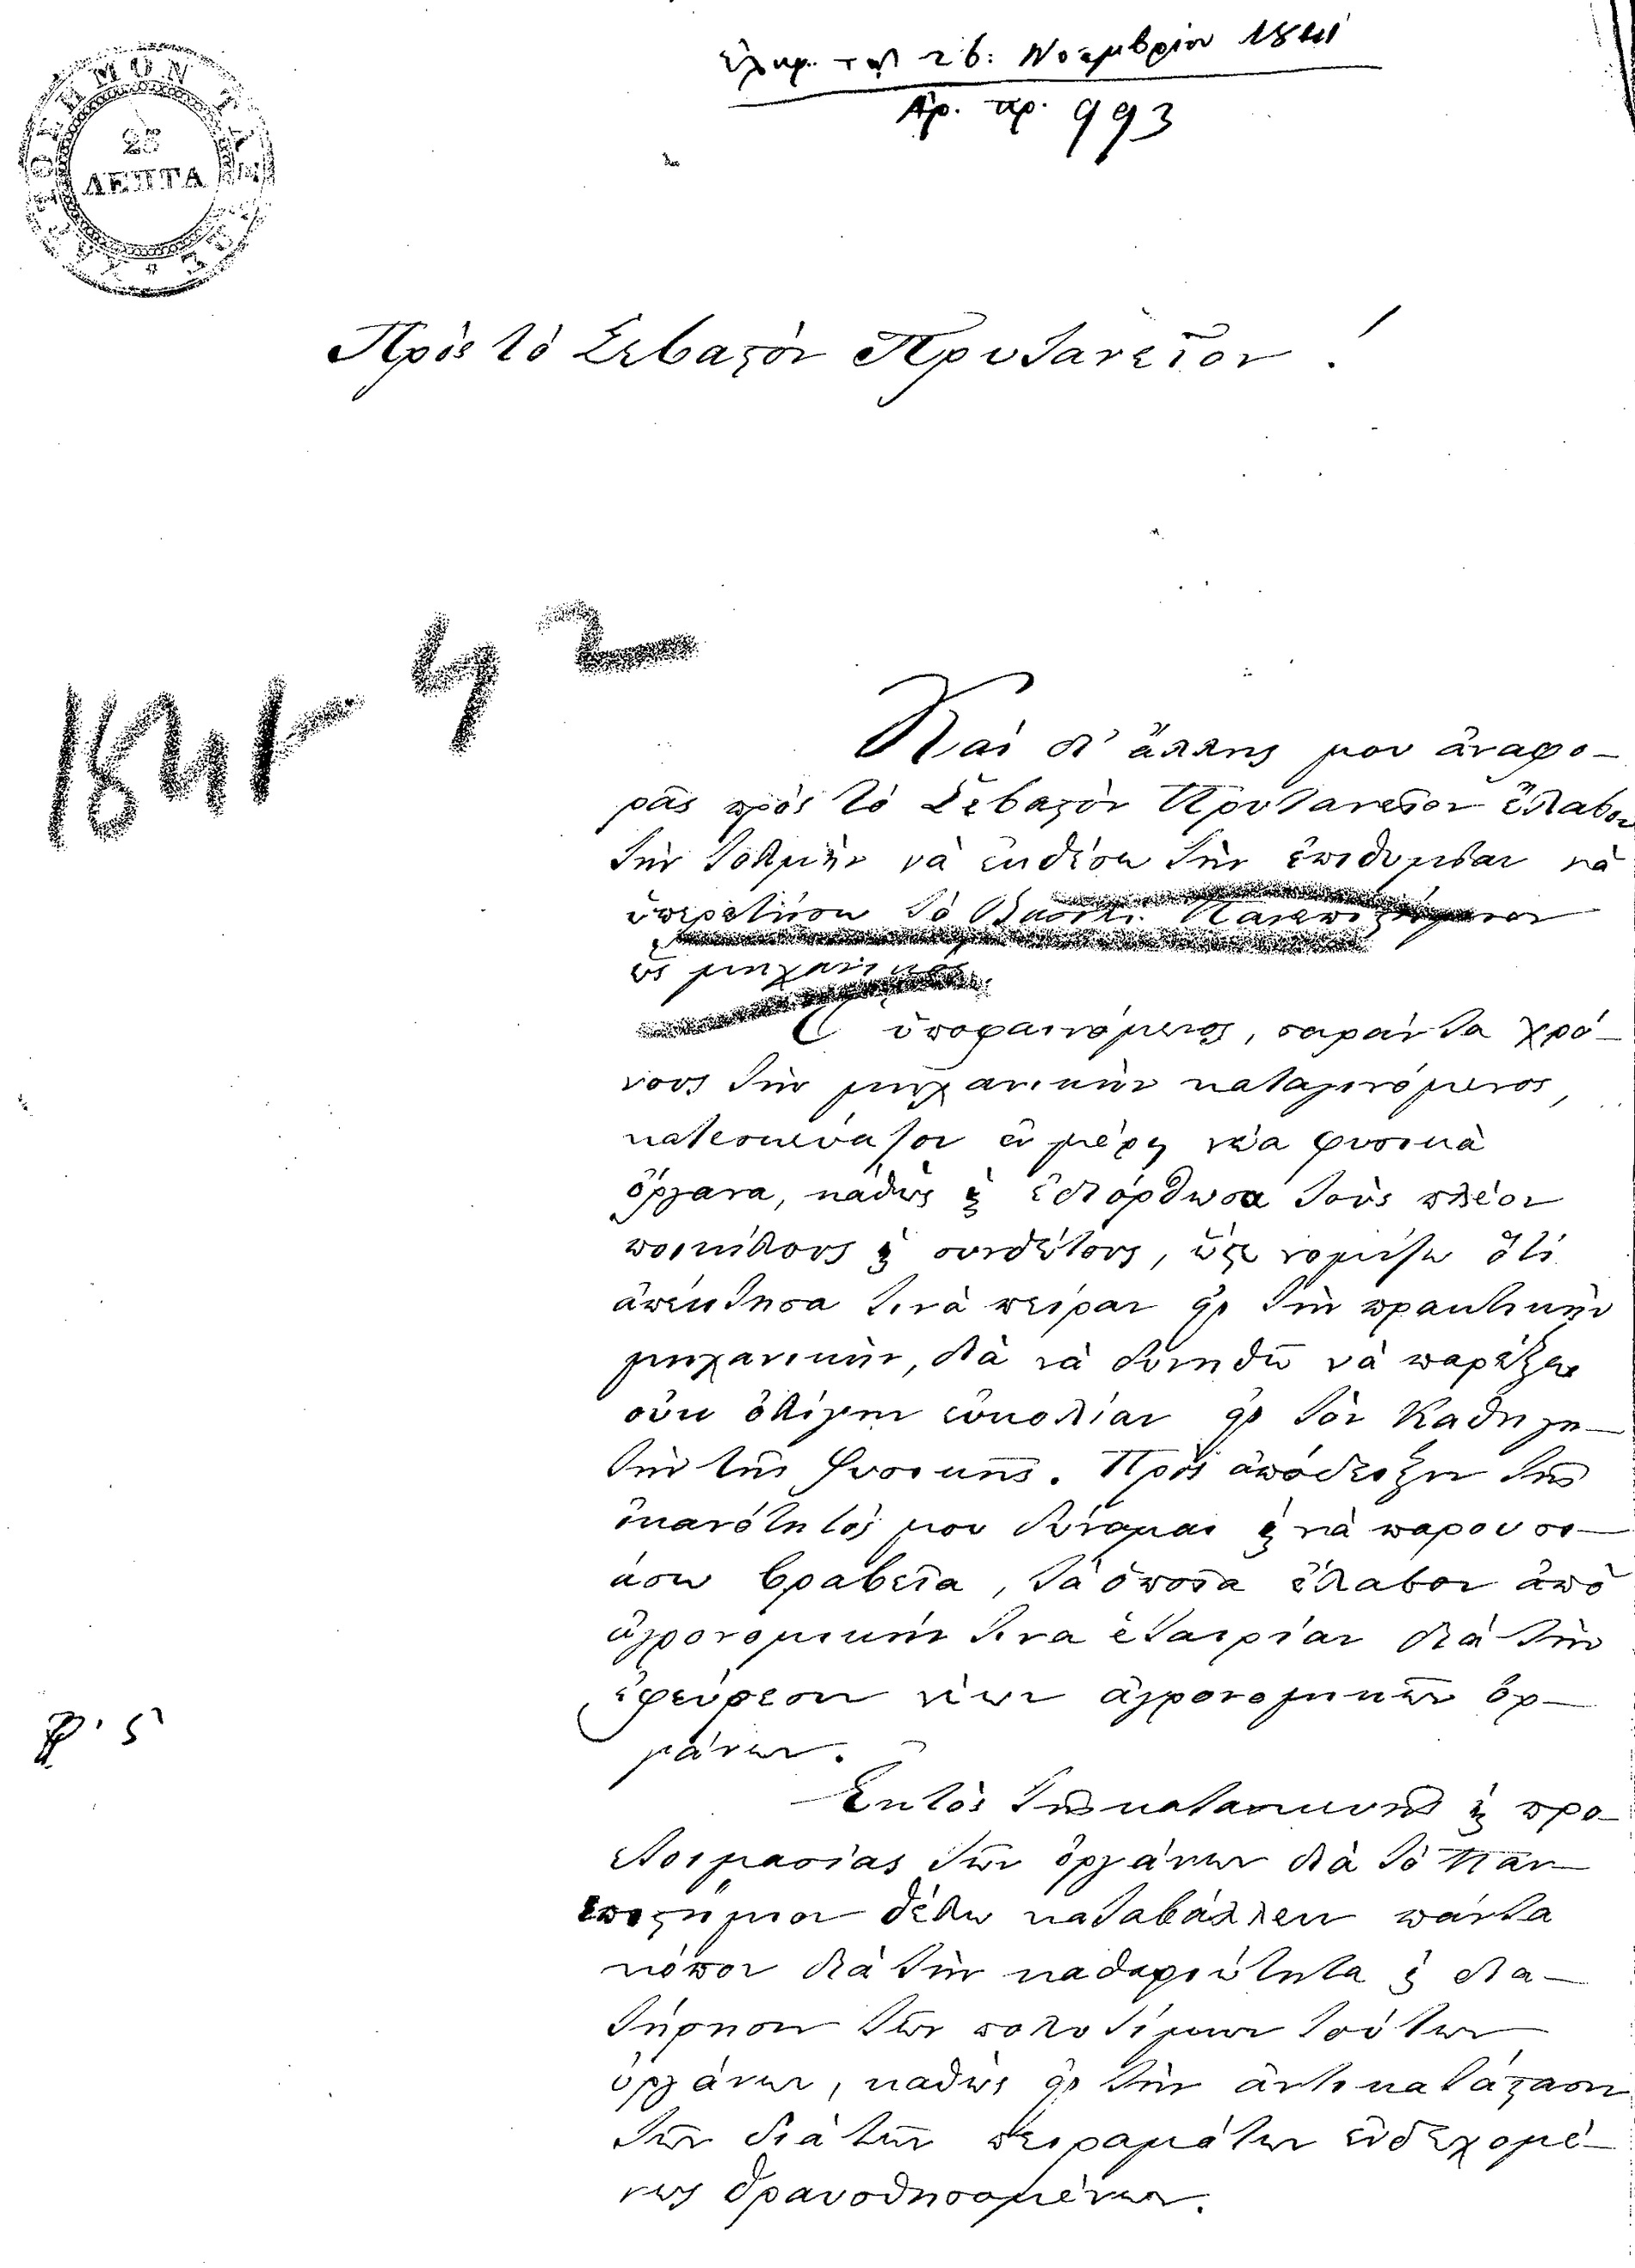 τὴν 26: Νοεμβρίου 1841
Ἀρ. πρ. 993
25
ΛΕΠΤΑ
Πρὸς τὸ Σεβαστὸν Πρυτανεῖον!
1841-42
Καὶ δι' ἄλλης μου ἀναφο-
ρᾶς πρὸς τὸ Σεβαστὸν Πρυτανεῖον ἔλαβον
τὴν τόλμην νὰ ἐκθέσω τὴν ἐπιθυμίαν νὰ
ὑπερετήσω τὸ Βασιλ. Πανεπιστήμιον
ὡς μηχανικός.
Ὁ ὑποφαινόμενος, σαράντα χρό-
νους τὴν μηχανικὴν καταγινόμενος,
κατεσκεύαζον ἐν μέρει νέα φυσικὰ
ὄργανα, καθὼς ϗ ἐδιόρθωσα τοὺς πλέον
ποικίλους ϗ συνθέτους, ὥστε νομίζω ὅτι
ἀπέκτησα τινὰ πεῖραν εἰς τὴν πρακτικὴν
μηχανικὴν, διὰ νὰ δυνηθῶ νὰ παρέξω
οὐκ ὀλίγην εὐκολίαν εἰς τὸν Καθηγη-
τὴν τῆς Φυσικῆς. Πρὸς ἀπόδειξιν τῆς
ἱκανότητός μου δύναμαι ϗ νὰ παρουσι-
άσω βραβεῖα, τὰ ὁποῖα ἔλαβον ἀπὸ
ἀγρονομικήν τινα ἑταιρίαν διὰ τὴν
ἐφεύρεσιν νέων ἀγρονομικῶν ὀρ-
γάνων.
Ἐκτὸς τῆς κατασκευῆς ϗ προ-
ετοιμασίας τῶν ὀργάνων διὰ τὸ Παν-
επιστήμιον θέλω καταβάλλειν πάντα
κόπον διὰ τὴν καθαριότητα ϗ δια-
τήρησιν τῶν πολυτίμων τούτων
ὀργάνων, καθὼς εἰς τὴν ἀντικατάστασιν
τῶν διὰ τῶν πειραμάτων ἐνδεχομέ-
νως θραυσθησομένων.